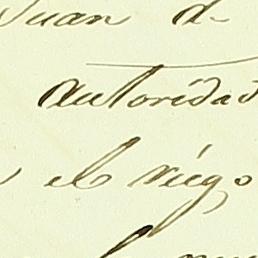 Juan d
autoridad
el riego